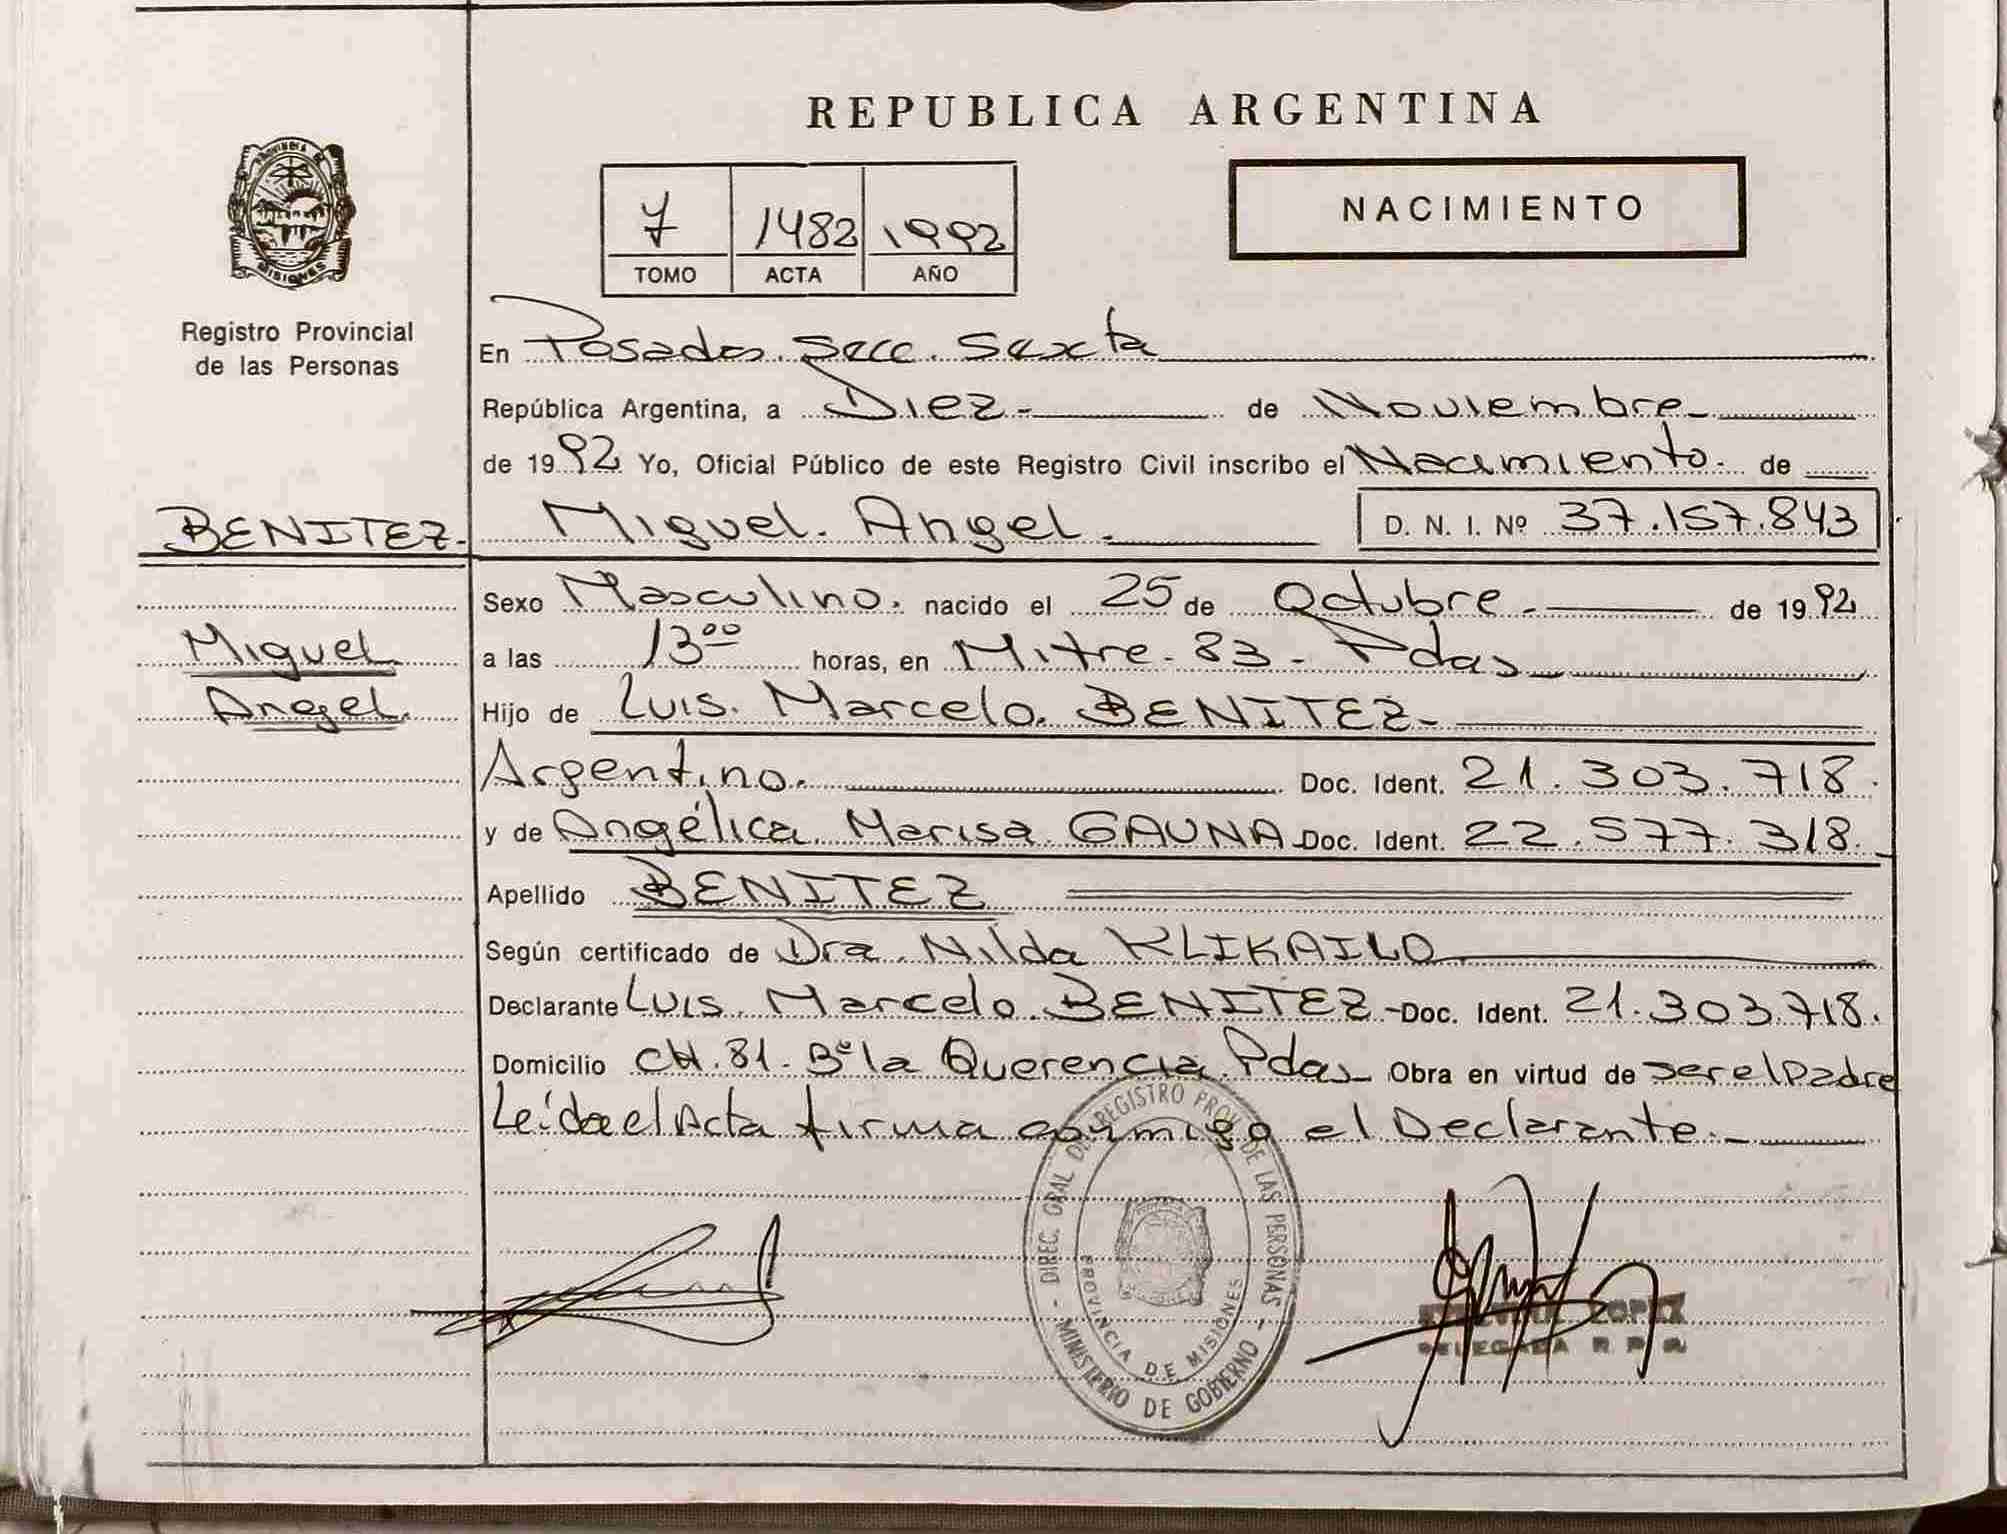 REPUBLICA ARGENTINA
PROVINCIA DE
MISIONES
Registro Provincial
de las Personas
7 1482 1992
TOMO ACTA AÑO
NACIMIENTO
En Posadas. Secc. Sexta
República Argentina, a Diez - de Noviembre
de 1992 Yo, Oficial Público de este Registro Civil inscribo el Nacimiento. de
BENITEZ. Miguel. Angel. D. N. I. Nº 37.157.843
Sexo Masculino. nacido el 25 de Octubre. de 1992
Miguel a las 13⁰⁰ horas, en Mitre - 83 - Pdas
Angel. Hijo de Luis. Marcelo. BENITEZ -
Argentino. Doc. Ident. 21.303.718.
y de Angélica Marisa GAUNA Doc. Ident. 22.577.318.
Apellido BENITEZ
Según certificado de Dra. Nilda KLIKAILO
Declarante Luis. Marcelo. BENITEZ - Doc. Ident. 21.303.718.
Domicilio CH. 81 - Bº la Querencia. Pdas Obra en virtud de ser el Padre
Leída el Acta firma conmigo el Declarante. -
- DIREC. GRAL DE REGISTRO PROV. DE LAS PERSONAS -
PROVINCIA DE MISIONES
MINISTERIO DE GOBIERNO
LOPEZ
DELEGADA R. P. P.